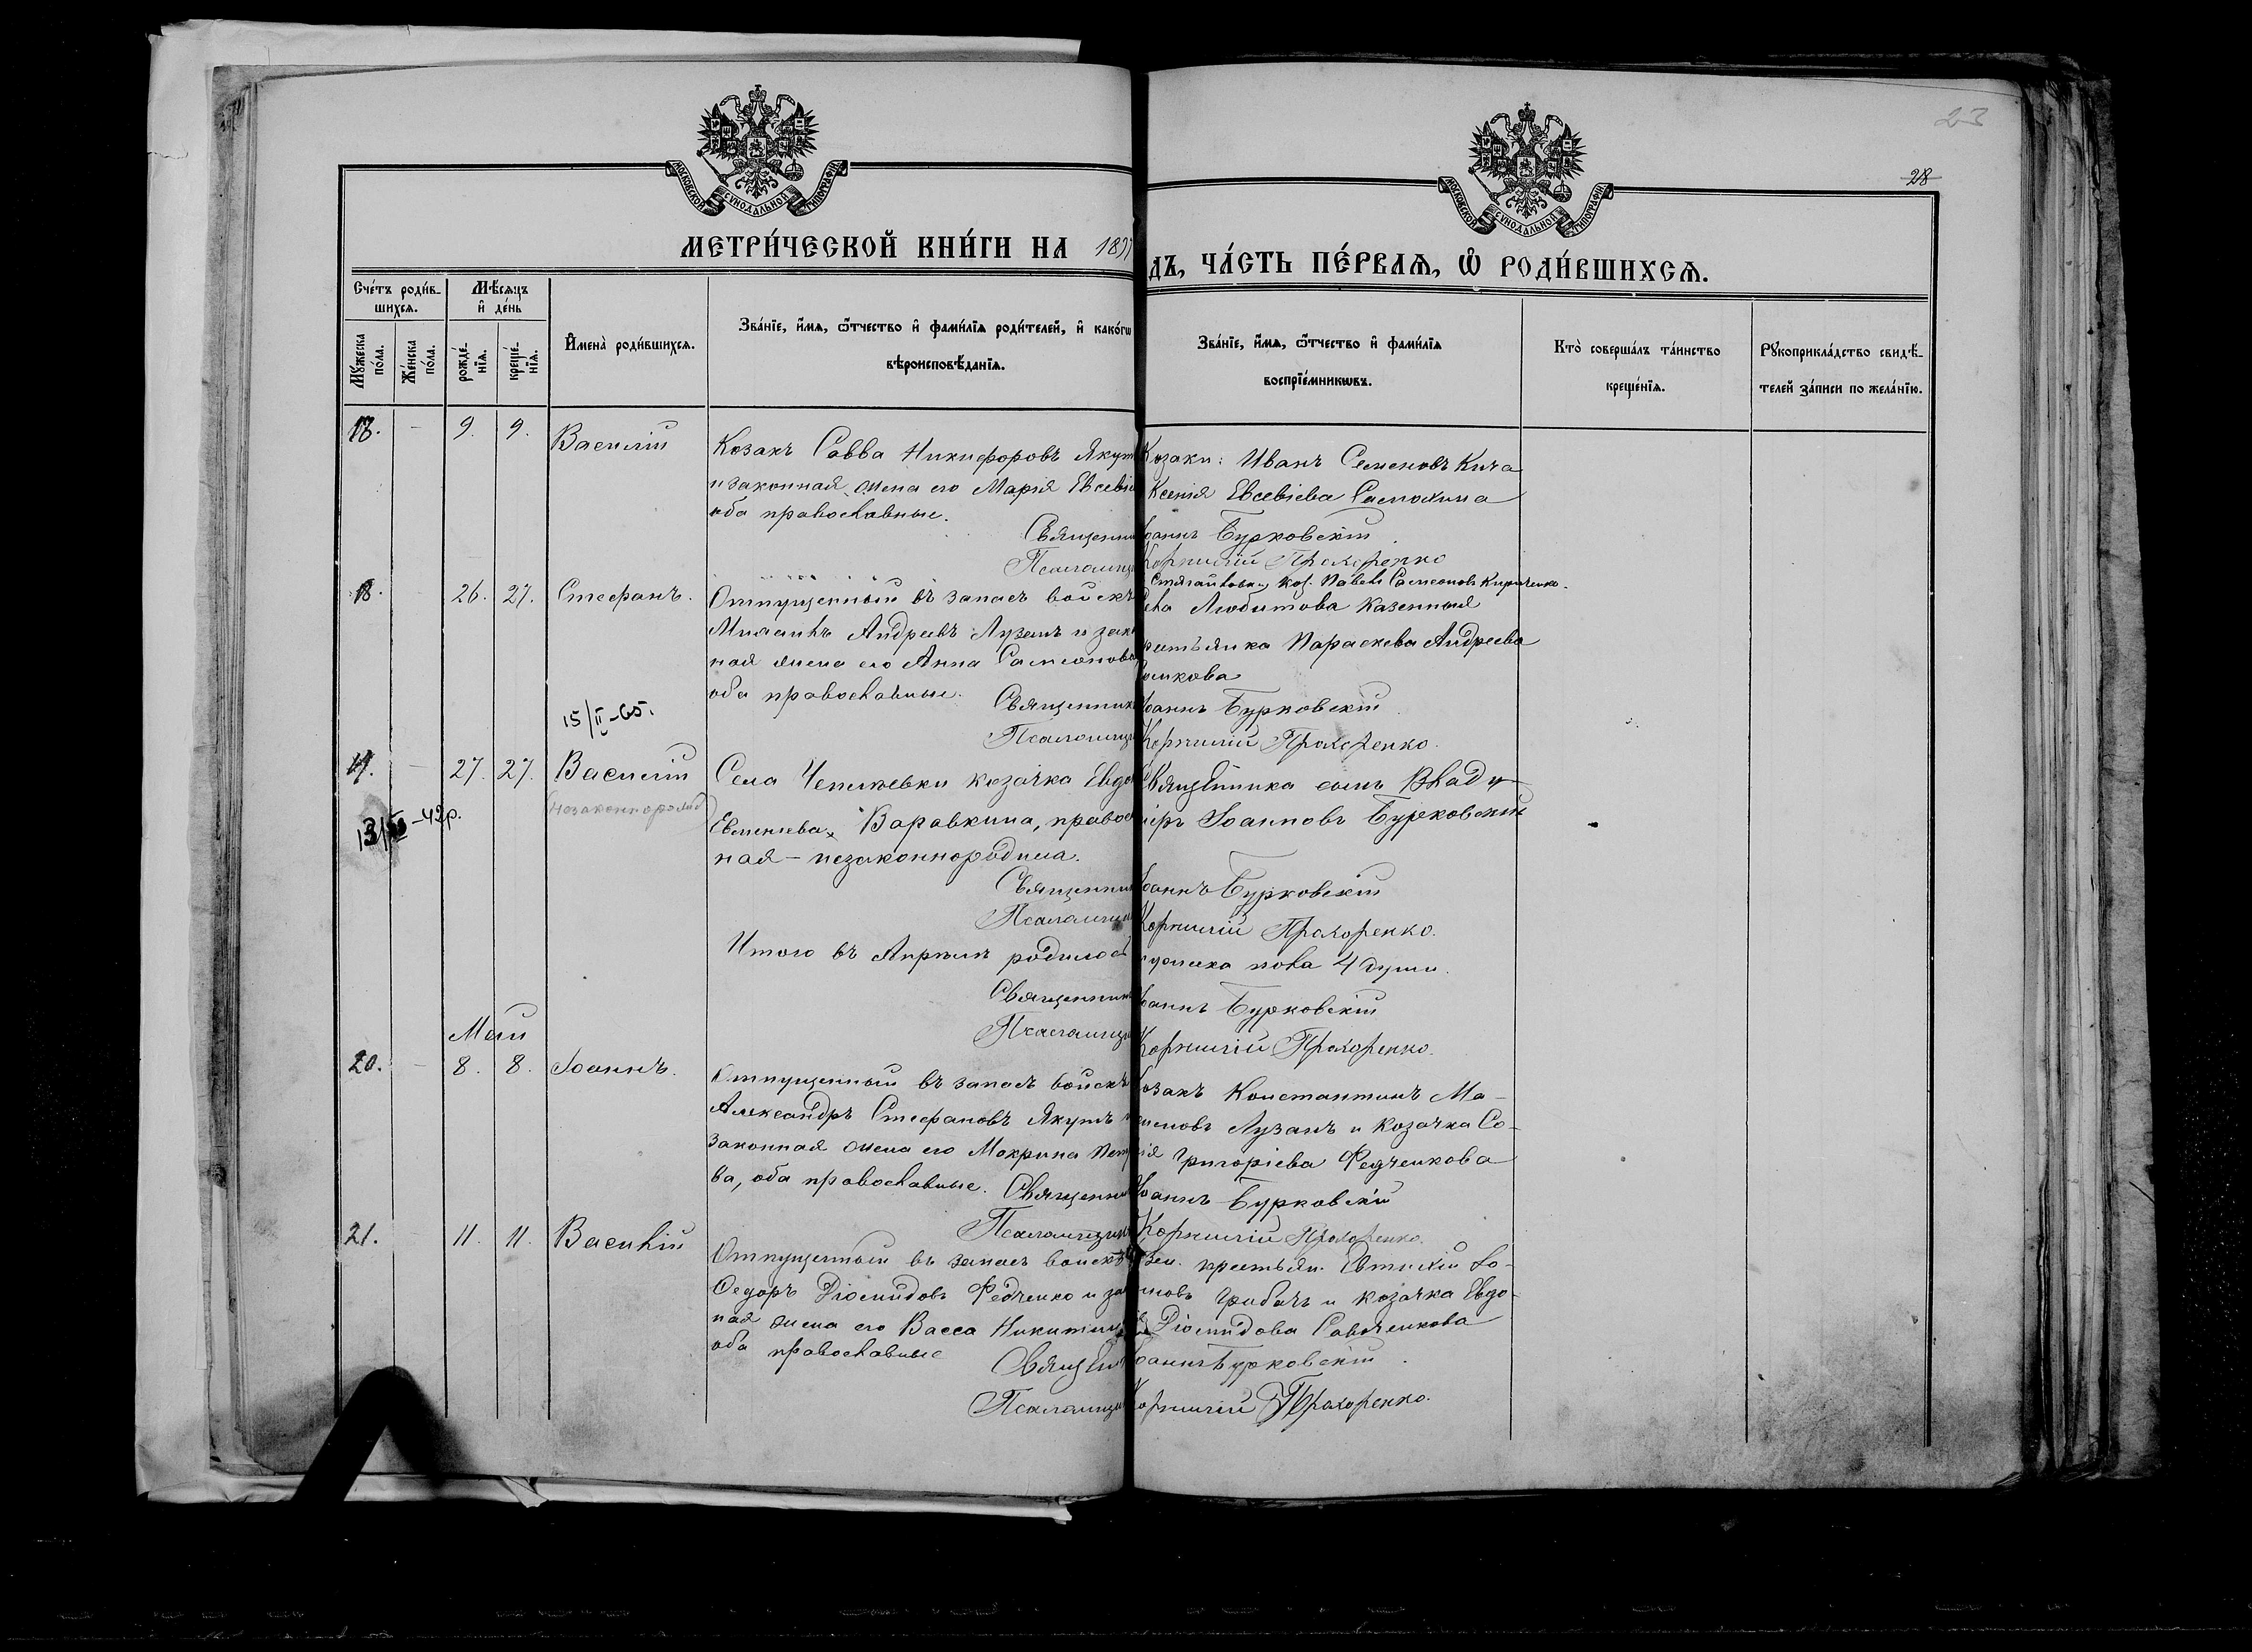 23
28
МОСКОВСКОЙ СѴНОДАЛЬНОЙ ТИПОГРАФІИ
МОСКОВСКОЙ СѴНОДАЛЬНОЙ ТИПОГРАФІИ
МЕТРИ́ЧЕСКОЙ КНИ́ГИ НА 189
ДЪ, ЧА́СТЬ ПЕ́РВАѦ, Ѽ РОДИ́ВШИХСѦ.
Сче́тъ роди́в-
шихсѧ.
Мѣ́сѧцъ
и҆ де́нь
Мꙋ́жеска по́ла.
Же́нска по́ла.
рожде́-
нїѧ.
креще́-
нїѧ.
И҆мена̀ роди́вшихсѧ.
Зва́нїе, и҆́мѧ, ѻ҆́тчество и҆ фами́лїѧ роди́телей, и҆ како́гѡ
вѣроисповѣ́данїѧ.
Зва́нїе, и҆́мѧ, ѻ҆́тчество и҆ фами́лїѧ
воспрїе́мникѡвъ.
Кто̀ соверша́лъ та́инство
креще́нїѧ.
Рꙋкоприкла́дство свидѣ́-
телей за́писи по жела́нїю.
9. 9. Василій
Козакъ Савва Никифоровъ Якут
и законная жена его Марія Евсевіе
оба православные.
Священни
Псаломщи
Козаки: Иванъ Семеновъ Кича
Ксенія Евсевіева
Іоаннъ Бурковскій
Корнилій Прохоренко
18. 26. 27. Стефанъ.
Отпущенный въ запасъ войскъ
Михаилъ Андреевъ Лузанъ и зако
ная жена его Анна Самсонова
оба православные. Священникъ
Псаломщи
коз. Павелъ Самсоновъ Кириченко.
Любитова казенная
рестьянка Параскева Андреева
Іоаннъ Бурковскій
Корнилій Прохоренко.
15/II-65.
19. 27. 27. Василій
(незаконнорожд)
-42р.
Села Чепилевки козачка Евдо
Евменіева Варавкина, правос
ная — незаконнородила.
Священни
Псаломщи
Священника сынъ Влади-
міръ Іоанновъ Бурковскій
Іоаннъ Бурковскій
Корнилій Прохоренко.
Итого въ Апрѣлѣ родилось
мужеска пола 4 души.
Священник
Псаломщи
Іоаннъ Бурковскій
Корнилій Прохоренко.
Май
20. 8. 8. Іоаннъ.
Отпущенный въ запасъ войскъ
Александръ Стефановъ Якутъ и
законная жена его Макрина Пет
ва, оба православные. Священни
Псаломщик
Козакъ Константинъ Ма-
Лузанъ и козачка Со-
Григоріева Федченкова
Іоаннъ Бурковскій
Корнилій Прохоренко.
21. 11. 11. Василій
Отпущенный въ запасъ войскъ
Ѳедоръ Діомидовъ Федченко и зак
ная жена его Васса Никитина
оба православные
Священ
Псаломщи
крестьян. Евтихій Іо-
Грибачъ и козачка Евдо-
Діомидова Савченкова
Іоаннъ Бурковскій
Корнилій Прохоренко.